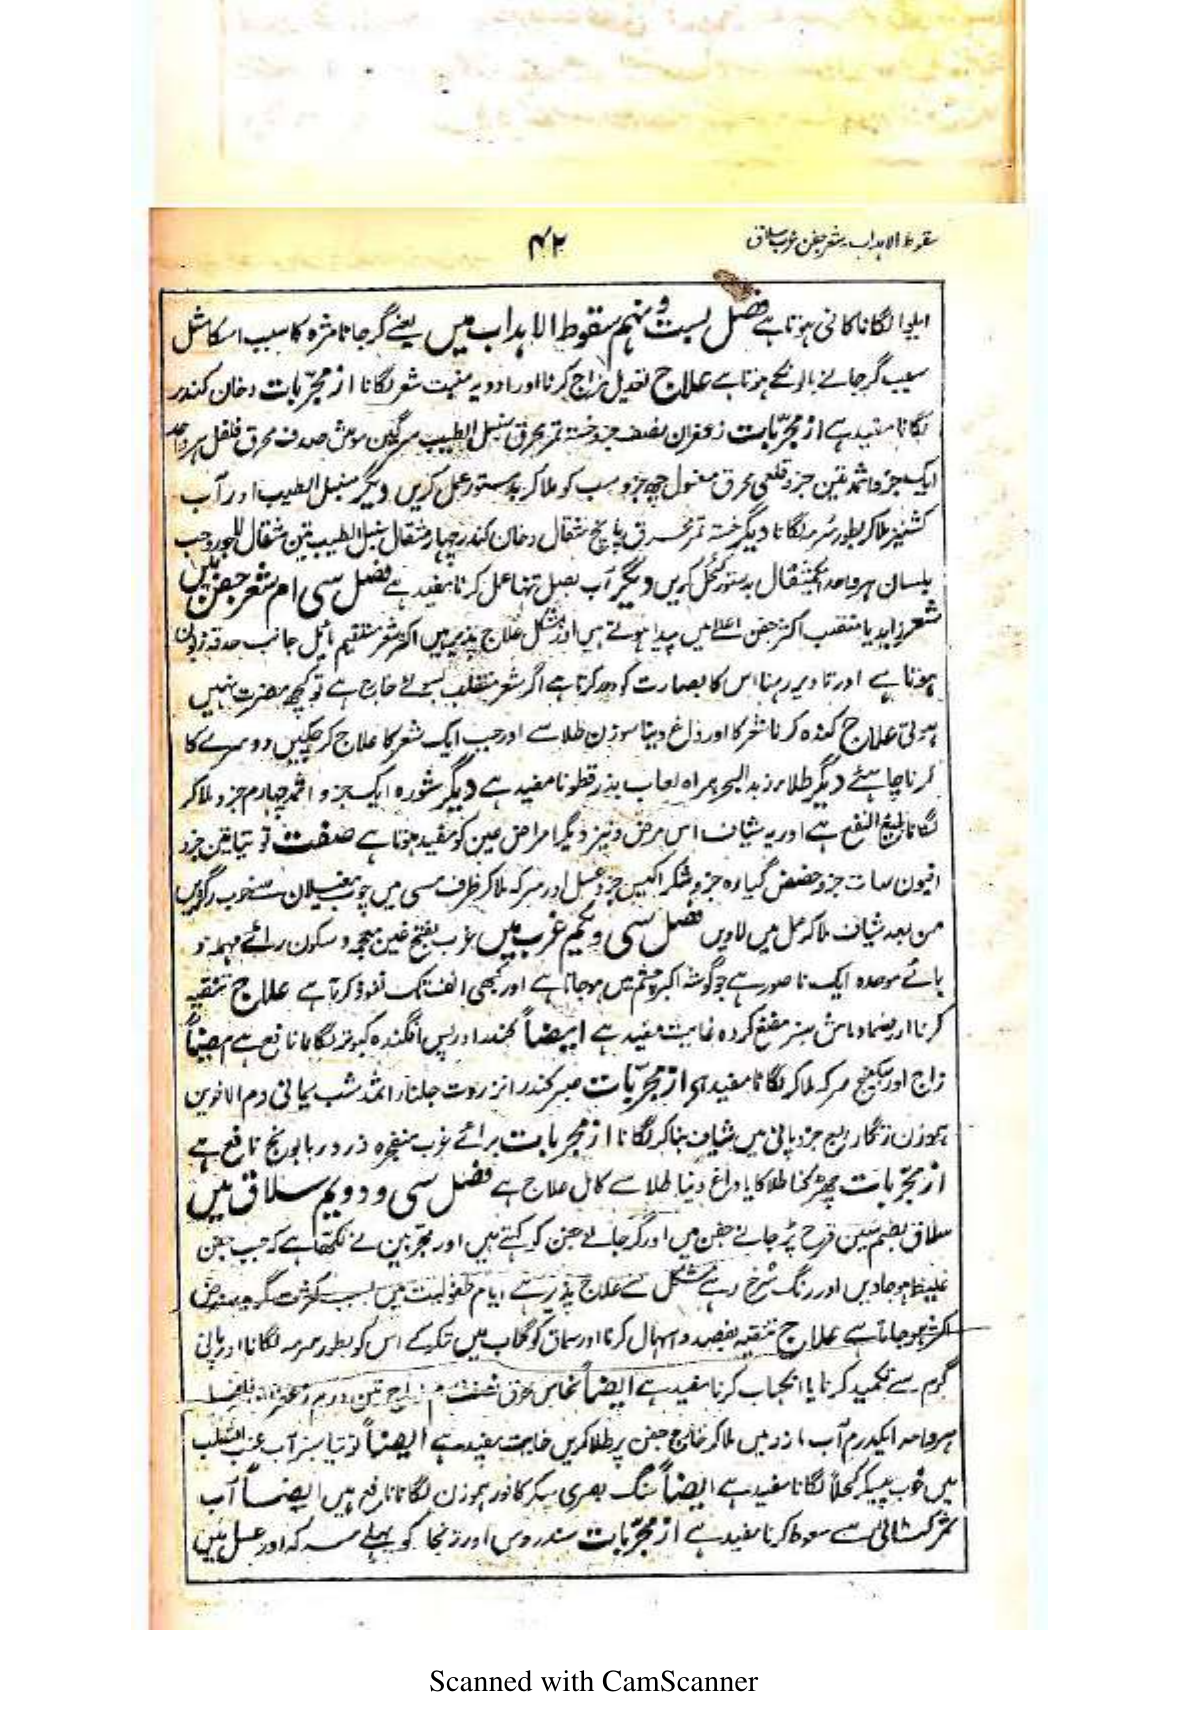 سقوط الاہداب۔ شعر جفن غرب سلاق
۴۲
ایلوا لگانا کافی ہوتا ہے فصل بست و نہم سقوط الاہداب میں یعنے گر جانا مژہ کا سبب اسکا مثل
سبب گر جانے بالونکے ہوتا ہے علاج تعدیل مزاج کرنا اور ادویہ منبت شعر لگانا از مجرّبات دخان کندر
لگانا مفید ہے از مجرّبات زعفران نصف جزو خستہ تمر محرق سنبل الطیب سرگین موش صدف محرق فلفل ہر واحد
ایک جزو اثمد تین جزو قلعی محرق مغسول چھ جزو سب کو ملا کر بدستور عمل کریں دیگر سنبل الطیب اور آب
کشنیز ملا کر بطور سُرمہ لگانا دیگر خستہ تمر محرق پانچ مثقال دخان کندر چہار مثقال سنبل الطیب تین مثقال لاجورد حب
بلسان ہر واحد یکمثقال بدستور کحل کریں دیگر آب بصل تنہا عمل کرنا مفید ہے فصل سی ام شعر جفن میں
شعر زاید یا منقلب اکثر جفن اعلے میں پیدا ہوتے ہیں اور مشکل علاج پذیر ہیں اکثر شعر مستقیم مائل جانب حدقہ
ہوتا ہے اور تا دیر رہنا اس کا بصارت کو کرتا ہے اگر شعر منقلب بسوئے خارج ہے تو کچھ مضرت نہیں
ہوتی علاج کندہ کرنا شعر کا اور داغ دینا سوزن طلا سے اور جب ایک شعر کا علاج کر چکیں دوسرے کا
کرنا چاہئے دیگر طلاء زبد البحر ہمراہ لعاب بذر قطونا مفید ہے دیگر شورہ ایک جزو اثمد چہارم جزو ملا کر
لگانا بلیغ النفع ہے اور یہ شیاف اس مرض و نیز دیگر امراض عین کو مفید ہوتا ہے صفت توتیا تین جزو
افیون سات جزو حضض گیارہ جزو شکر اکیس جزو عسل اور سرکہ ملا کر ظرف مسی میں چوب مغیلان سے خوب رگڑیں
من بعد شیاف بنا کر عمل میں لاویں فصل سی و یکم غرب میں غرب بفتح غین معجمہ و سکون رائے مہملہ و
بائے موحدہ ایک ناصور ہے جو گوشہ اکبر چشم میں ہو جاتا ہے اور کبھی انف تک نفوذ کرتا ہے علاج تنقیہ
کرنا اور ضماد ماش سبز کردہ غایت مفید ہے ایضاً کندر اور پس افگندہ کبوتر لگانا نافع ہے ایضاً
زاج اور سکبینج سرکہ ملا کر لگانا مفید ہے از مجرّبات صبر کندر انزروت جلنار اثمد شب یمانی دم الاخوین
ہموزن زنگار ربع جزو پانی میں شیاف بنا کر لگانا از مجربات برائے غرب منفجرہ ذرور بابونج نافع ہے
از مجرّبات طلا کا یا داغ دینا طلا سے کامل علاج ہے فصل سی و دویم سلاق میں
سلاق بضم سین قرح پڑ جانے جفن میں اور گر جانے جفن کو کہتے ہیں اور مجربین نے لکھا ہے کہ جب جفن
غلیظ ہو جاویں اور رنگ سُرخ رہے مشکل سے علاج پذیر ہے ایام طفولیت میں بسبب کثرت گریہ یہ مرض
اکثر ہو جاتا ہے علاج تنقیہ بفصد و اسہال کرنا اور سماق کو گلاب میں تر کر کے اس کو بطور سرمہ لگانا اور پانی
گرم سے تکمید کرنا یا انکباب کرنا مفید ہے ایضاً نحاس محرق نصف درم زاج تین درم زعفران فلفل
ہر واحد ایکدرم آب میں ملا کر خارج جفن پر طلا کریں غایت مفید ہے ایضاً توتیا سبز آب عنب الثعلب
میں خوب پیسکر کحلاً لگانا مفید ہے ایضاً سنگ بصری سکر کافور ہموزن لگانا نافع ہیں ایضاً آب
ثمر سے سعوط کرنا مفید ہے از مجرّبات سندروس اور کو پہلے سرکہ اور عسل میں
Scanned with CamScanner